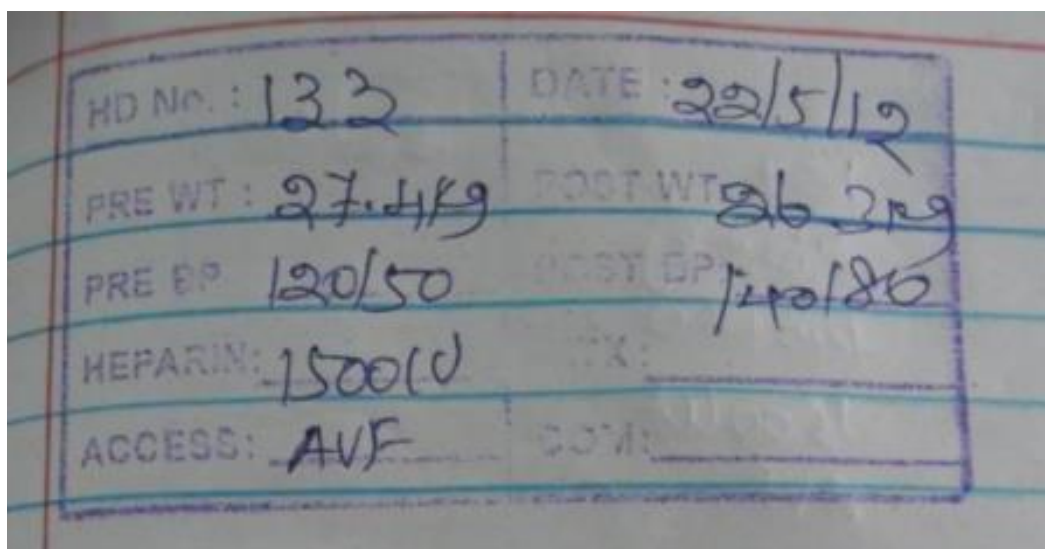 HD No. : 133 DATE : 22/5/12
PRE WT : 27.4kg POST WT 26.3kg
PRE BP 120/50 POST BP 140/80
HEPARIN: 1500IU TX :
ACCESS: AVF COM: